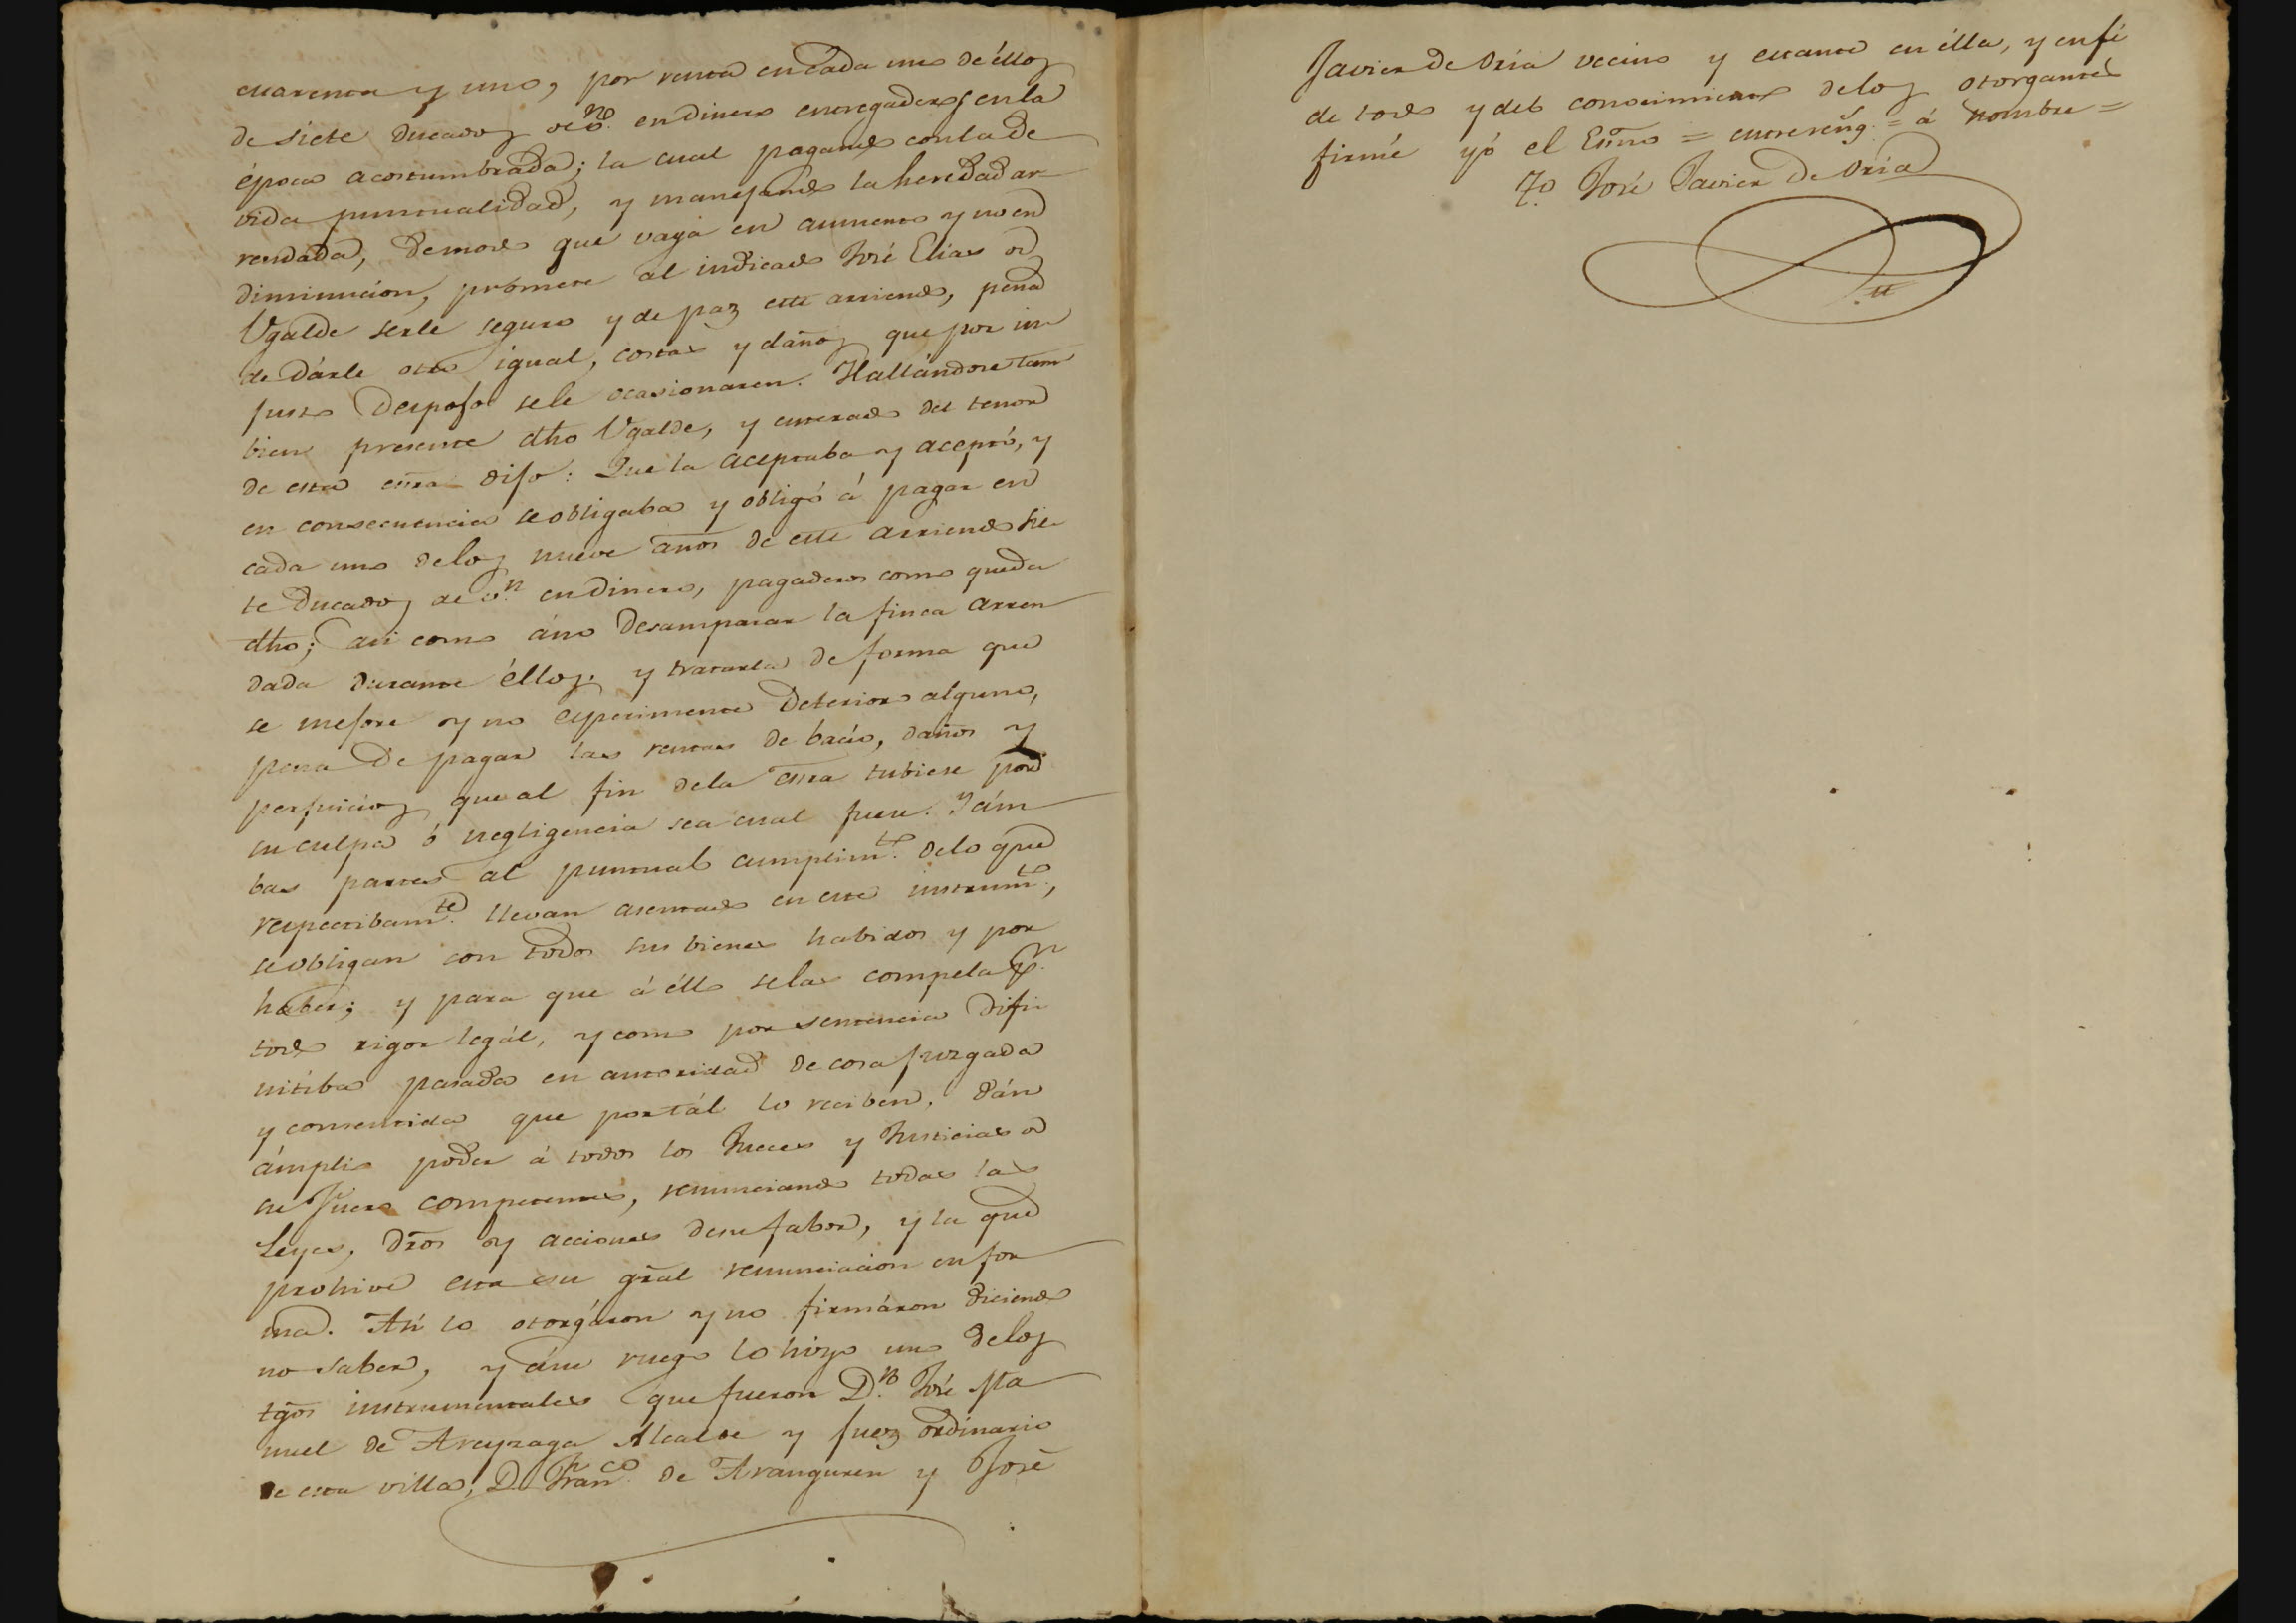 cuarenta y uno, por renta en cada uno de éllos
de siete Ducados de v.n en dinero entregaderos en la
época acostumbrada; la cual pagando con la de
vida puntualidad, y manejando la heredad ar
rendada, de modo que vaya en aumento y no en
diminucion, promete al indicado José Elias de
Ugalde serle seguro y de paz este arriendo, pena
de dárle otro igual, costas y daños que por in
justo despojo se le ocasionaren. Hallándose tam
bien presente dho Ugalde, y enterado del tenor
de esta esra dijo: Que la aceptaba y aceptó, y
en consecuencia se obligaba y obligó á pagar en
cada uno de los nueve años de este arriendo sie
te Ducados de v.n en dinero, pagaderos como queda
dho; asi como áno desamparar la finca arren
dada durante éllos. y tratarla de forma que
se mejore y no esperimente deterioro alguno,
pena de pagar las rentas de bacio, daños y
perjuicios que al fin de la esra tubiere por
su culpa ó negligencia sea cual fuere. Y ám
bas partes al puntual cumplim.to de lo que
respectibam.te llevan asentado en este instrum.to,
se obligan con todos sus bienes habidos y por
haber; y para que á éllo se las compela p.r
todo rigor legál, y como por sentencia difi
nitiba pasada en autoridad de cosa juzgada
y consentida que por tál lo reciben, dán
ámplio poder á todos los Jueces y Justicias de
su fuero competentes, renunciando todas las
Leyes, dros y acciones de su fabor, y la que
prohive esta su gral renunciacion en for
ma. Asi lo otorgáron y no firmáron diciendo
no saber, y á su ruego lo hizo uno de los
tgos instrumentales que fueron D.n José Ma
nuel de Areyzaga Alcalde y Juez ordinario
de esta villa, D.n Fran.co de Aranguren y José
Javier de Oria vecino y estante en élla, y en fé
de todo y del conocimiento de los otorgantes
firmé yó el Esno = entrereng. = á nombre =
T.o José Javier de Oria